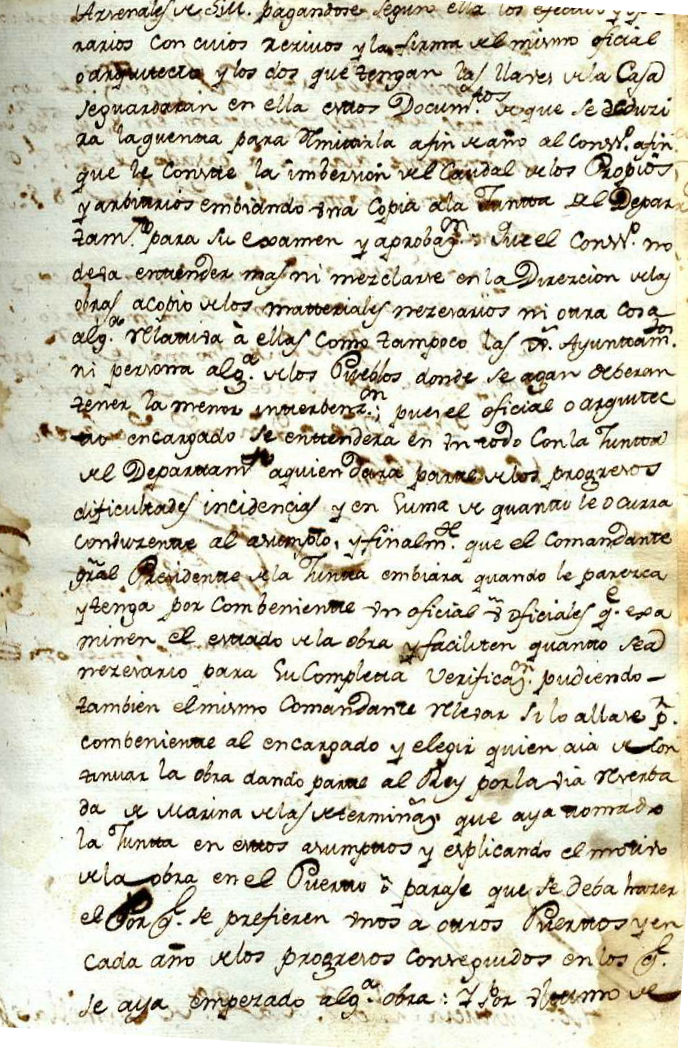 Arsenales de S.M. pagandose segun ella los efectos y ope
rarios con cuios recivos y la firma del mismo oficial
o arquitecto y los dos que tengan las llaves de la Casa
se guardaran en ella estos Docum.tos de que se deduzi
ra la quenta para Rmitirla a fin de año al Cons.o afin
que le Conste la imbersion del Caudal de los Propios
y arbitrios embiando vna Copia ala Juntta del Depar
tam.to para su examen y aprobaz.n: Que el Cons.o no
deva entender mas ni mezclarse en la Direzcion de las
obras acopio de los matteriales nezesarios ni otra Cosa
alg.a Rlativa à ellas como tampoco las Ayuntam.tos
ni persona alg.a de los Pueblos donde se agan deberan
tener la menor intterbenz.n; pues el oficial o arquitec
tto encargado se enttendera en vn todo Con la Juntta
del Departtam.to aquien dara parte de los progresos
dificultades incidencias y en Suma de quantto le ocurra
conduzente al asumpto, y finalm.te que el Comandante
gral Presidente de la Juntta embiara quando le parezca
y tenga por Combeniente vn oficial ù oficiales q.e exa
minen el estado de la obra y faciliten quanto sea
nezesario para Su Completta Verificaz.n pudiendo
tambien el mismo Comandante Rlevar si lo allase p.r
combeniente al encargado y elegir quien aia de con
tinuar la obra dando parte al Rey por la via Rserba
da de Marina de las determinaz.s que aya tomado
la Juntta en estos asumpttos y esplicando el motivo
de la obra en el Puerto ò paraje que se deba hazer
el Por q.e se prefieren vnos a otros Puerttos y en
Cada año de los progresos Conseguidos en los q.e
se aya empezado alg.a obra: Y Por vltimo de